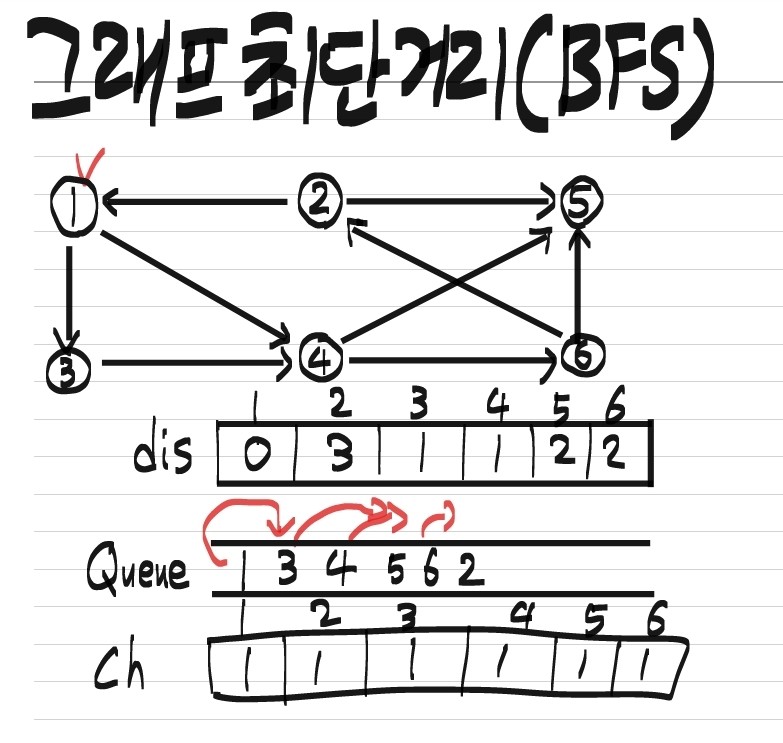 그래프 최단거리(BFS)
1 2 5
3 4 6
1 2 3 4 5 6
dis 0 3 1 1 2 2
Queue 1 3 4 5 6 2
1 2 3 4 5 6
ch 1 1 1 1 1 1